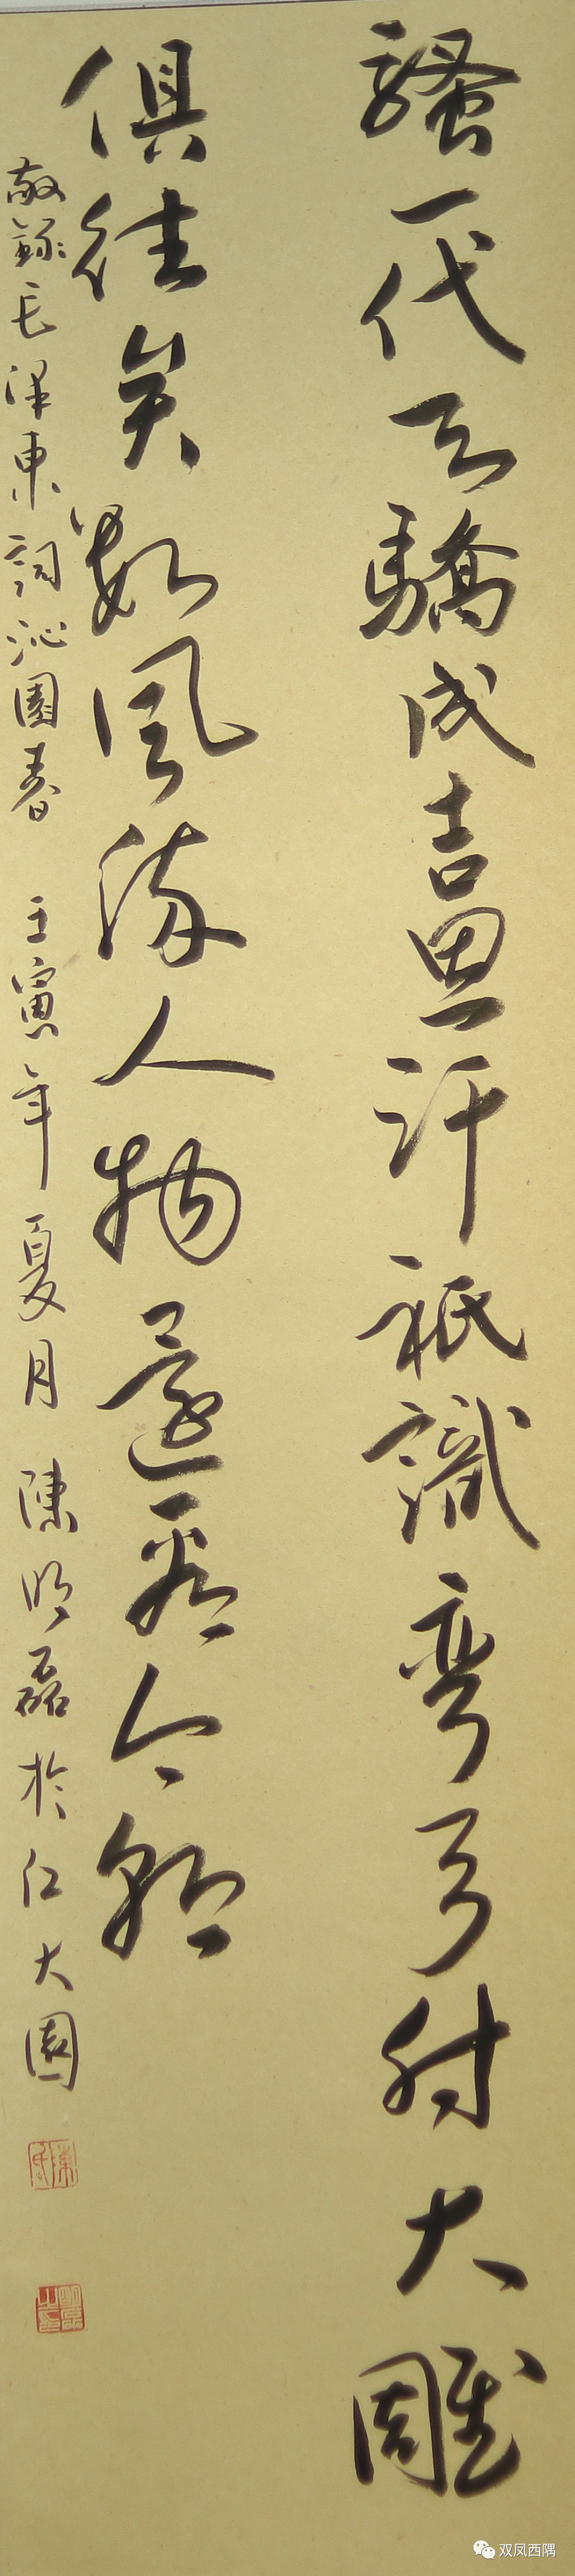 騷一代天驕成吉思汗祇識彎弓射大雕
俱往矣數風流人物還看今朝
敬錄毛澤東詞沁園春 壬寅年夏月 陳明磊於仁大園
双凤西隅